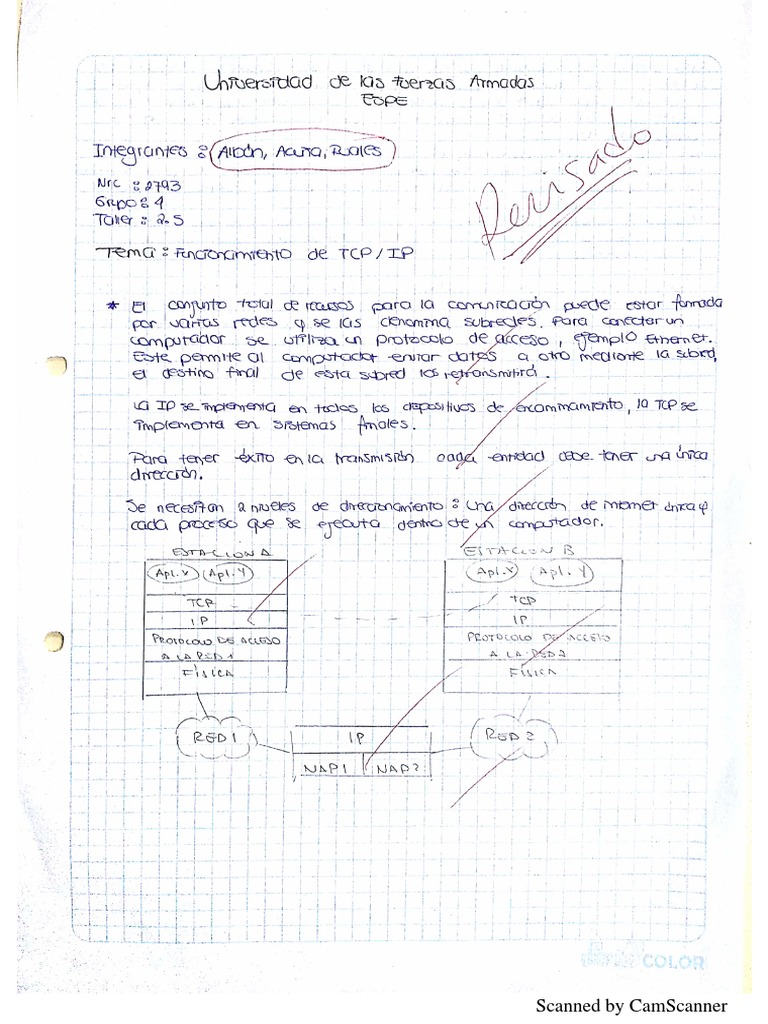 Universidad de las Fuerzas Armadas
ESPE
Integrantes : Albán, Acuña, Ruales
Revisado
Nrc : 2793
Grupo : 4
Taller : 2.5
Tema : Funcionamiento de TCP / IP
* El conjunto total de recursos para la comunicación puede estar formada
por varias redes y se las denomina subredes. Para conectar un
computador se utiliza un protocolo de acceso, ejemplo Ethernet.
Este permite al computador enviar datos a otro mediante la subred,
el destino final de esta subred los retransmitirá.
La IP se implementa en todos los dispositivos de encaminamiento, la TCP se
implementa en sistemas finales.
Para tener éxito en la transmisión cada entidad debe tener una única
dirección.
Se necesitan 2 niveles de direccionamiento : una dirección de internet única y
cada proceso que se ejecuta dentro de un computador.
ESTACION A ESTACION B
Apl. X Apl. Y Apl. X Apl. Y
TCP TCP
IP IP
PROTOCOLO DE ACCESO PROTOCOLO DE ACCESO
A LA RED 1 A LA RED 2
FÍSICA FÍSICA
RED 1 IP RED 2
NAP 1 NAP 2
COLOR
Scanned by CamScanner